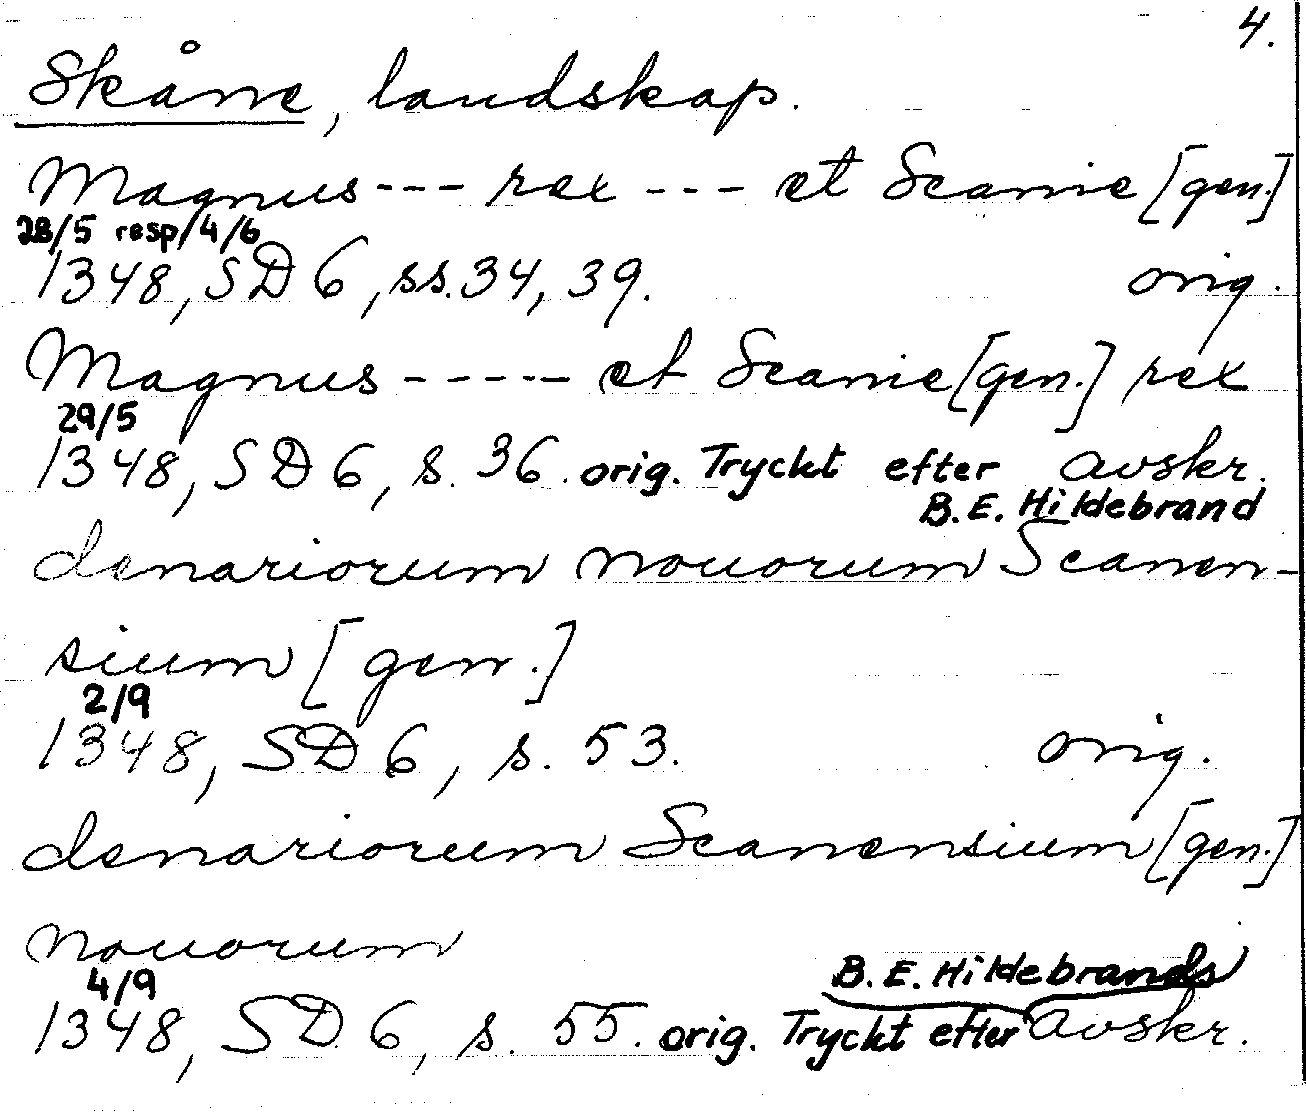 4.
Skåne, landskap.
Magnus --- rex --- et Scanie [gen.]
28/5 resp/4/6
1348, SD 6, ss. 34, 39. orig.
Magnus ----- et Scanie [gen.] rex
29/5
1348, SD 6, s. 36. orig. Tryckt efter avskr.
B. E. Hildebrand
denariorum nouorum Scanen-
sium [gen.]
2/9
1348, SD 6, s. 53. orig.
denariorum Scanensium [gen.]
nouorum
4/9 B. E. Hildebrands
1348, SD 6, s. 55. orig. Tryckt efter avskr.